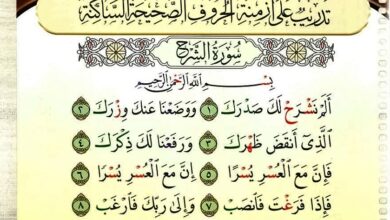 تدريب على أزمنة الحروف الصحيحة الساكنة
سورة الشرح
بِسْمِ اللَّهِ الرَّحْمَٰنِ الرَّحِيمِ
أَلَمْ نَشْرَحْ لَكَ صَدْرَكَ ١ وَوَضَعْنَا عَنكَ وِزْرَكَ ٢
الَّذِي أَنقَضَ ظَهْرَكَ ٣ وَرَفَعْنَا لَكَ ذِكْرَكَ ٤
فَإِنَّ مَعَ الْعُسْرِ يُسْرًا ٥ إِنَّ مَعَ الْعُسْرِ يُسْرًا ٦
فَإِذَا فَرَغْتَ فَانصَبْ ٧ وَإِلَىٰ رَبِّكَ فَارْغَب ٨